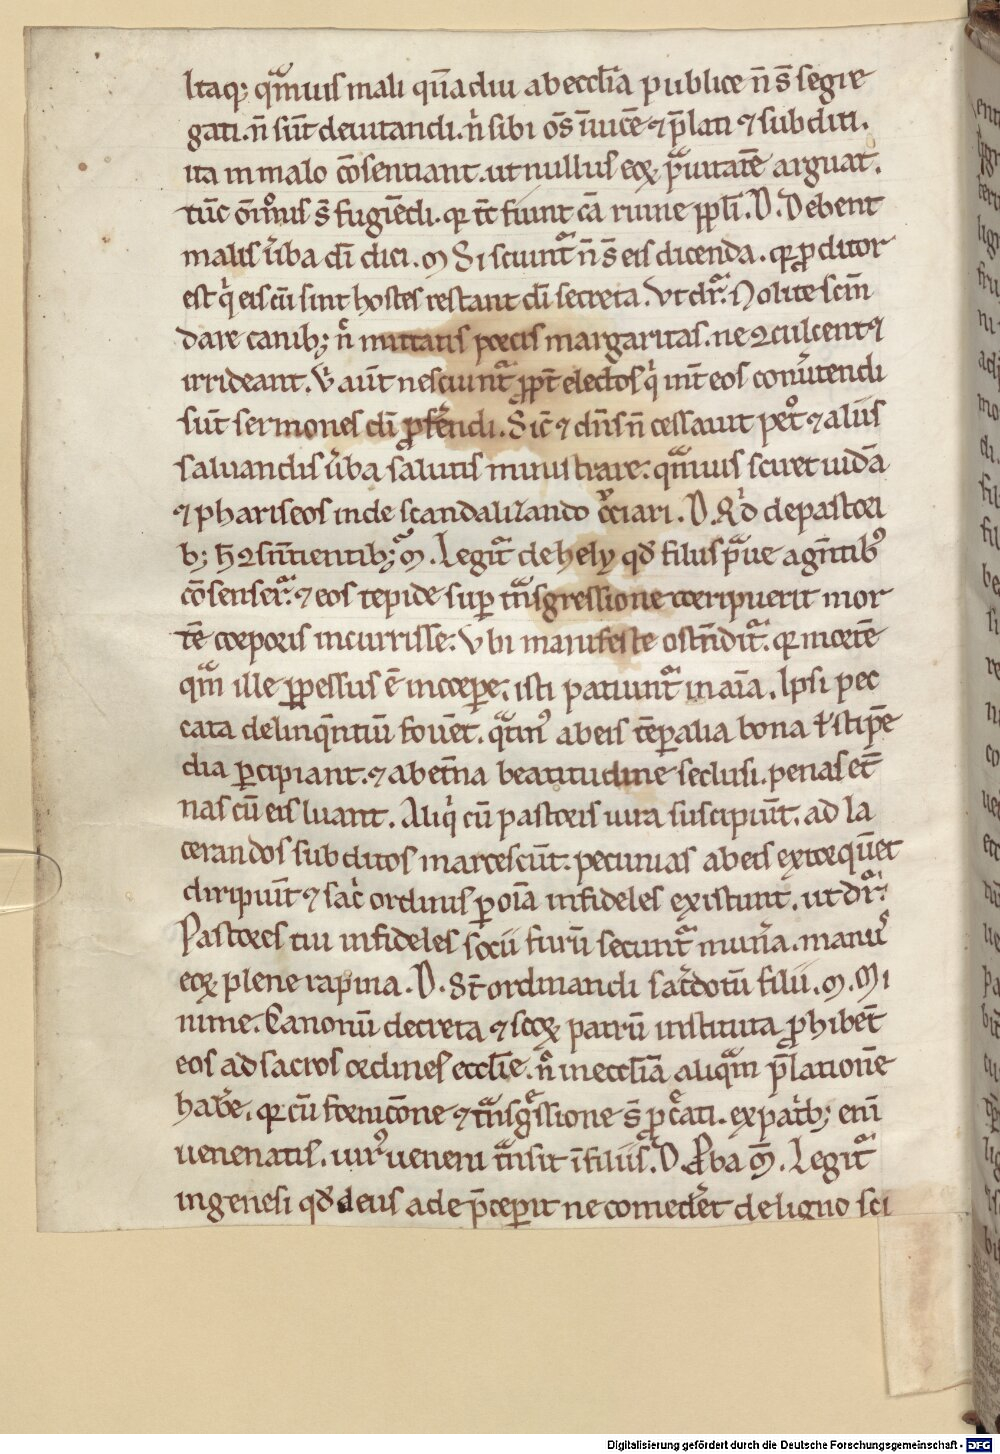 Itaq; qͣmuis mali qͣmdiu ab eccl̄ia publice n̄ s̄ segre
gati. n̄ sūt deuitandi. nͥ sibi oēs īuicē ⁊ p̄lati ⁊ subditi.
ita in malo cōsentiant. ut nullus eoꝝ pͣuitatē arguat.
tūc ōimoͩis s̄ fugiēdi. qꝛ tc̄ fiunt cā ruine pp̄li. D. Debent
malis ūba dī dici. ꝳ Si sciunt᷑ n̄ s̄ eis dicenda. qꝛ ꝓditor
est qͥ eis cū sint hostes restant dī secreta. Vt dr̄. Nolite scm̄
dare canib; n̄ mittatis porcis margaritas. ne ꝯculcent ⁊
irrideant. Vͥ aūt nesciunt᷑ ꝓpt̄ electos qͥ int̄ eos conūtendi
sūt sermones dī ꝓferēdi. Sic̄ ⁊ dn̄s n̄ cessauit petͦ ⁊ aliis
saluandis ūba salutis ministrare. qͣmuis sciret iudā
⁊ phariseos inde scandalizando cͨciari. D. Qͥd de pastori
b; h̄ ꝯsn̄tientib; ꝳ. Legit᷑ de hely qd̄ filiis pͣue agn̄tib᷒
cōsenser̄. ⁊ eos tepide sup tͣnsgressione corripuerit mor
tē corporis incurrisse. Vbi manifeste ostn̄dit᷑. qꝛ mortē
qͣm ille ꝑpessus ē in corpore; isti patiunt᷑ in aīa. Ipsi pec
cata delinqn̄tiū fouēt. qͣtin᷒ ab eis tēꝑalia bona ł stipē
dia ꝑcipiant. ⁊ ab et̄na beatitudine seclusi. penas et̄
nas cū eis luant. Aliqͥ cū pastoris uira suscipiūt. ad la
cerandos subditos marcescūt. pecunias ab eis extorquēt
diripiūt ⁊ sac̄ ordinis ꝑ oīa infideles existunt. ut dr̄.
Pastores tui infideles socii furū secunt᷑ mun̄a. manus
eoꝝ plene rapina. D. St̄ ordinandi sac̄dotū filii. ꝳ. Mi
nime. Canonū decreta ⁊ scoꝝ patrū instituta ꝓhibēt
eos ad sacros ordines eccl̄ie. n̄ in eccl̄ia aliqͣm p̄lationē
hab̄e. qꝛ cū fornicōne ⁊ tͣnsgͤssione s̄ pͨcati. ex pat̄b; enī
uenenatis. uir᷒ ueneni tͣnsit ī filiis. D. Ꝓba ꝳ. Legit᷑
in genesi qd̄ deus ade p̄ceperit ne comedēt de ligno sci
Digitalisierung gefördert durch die Deutsche Forschungsgemeinschaft - DFG